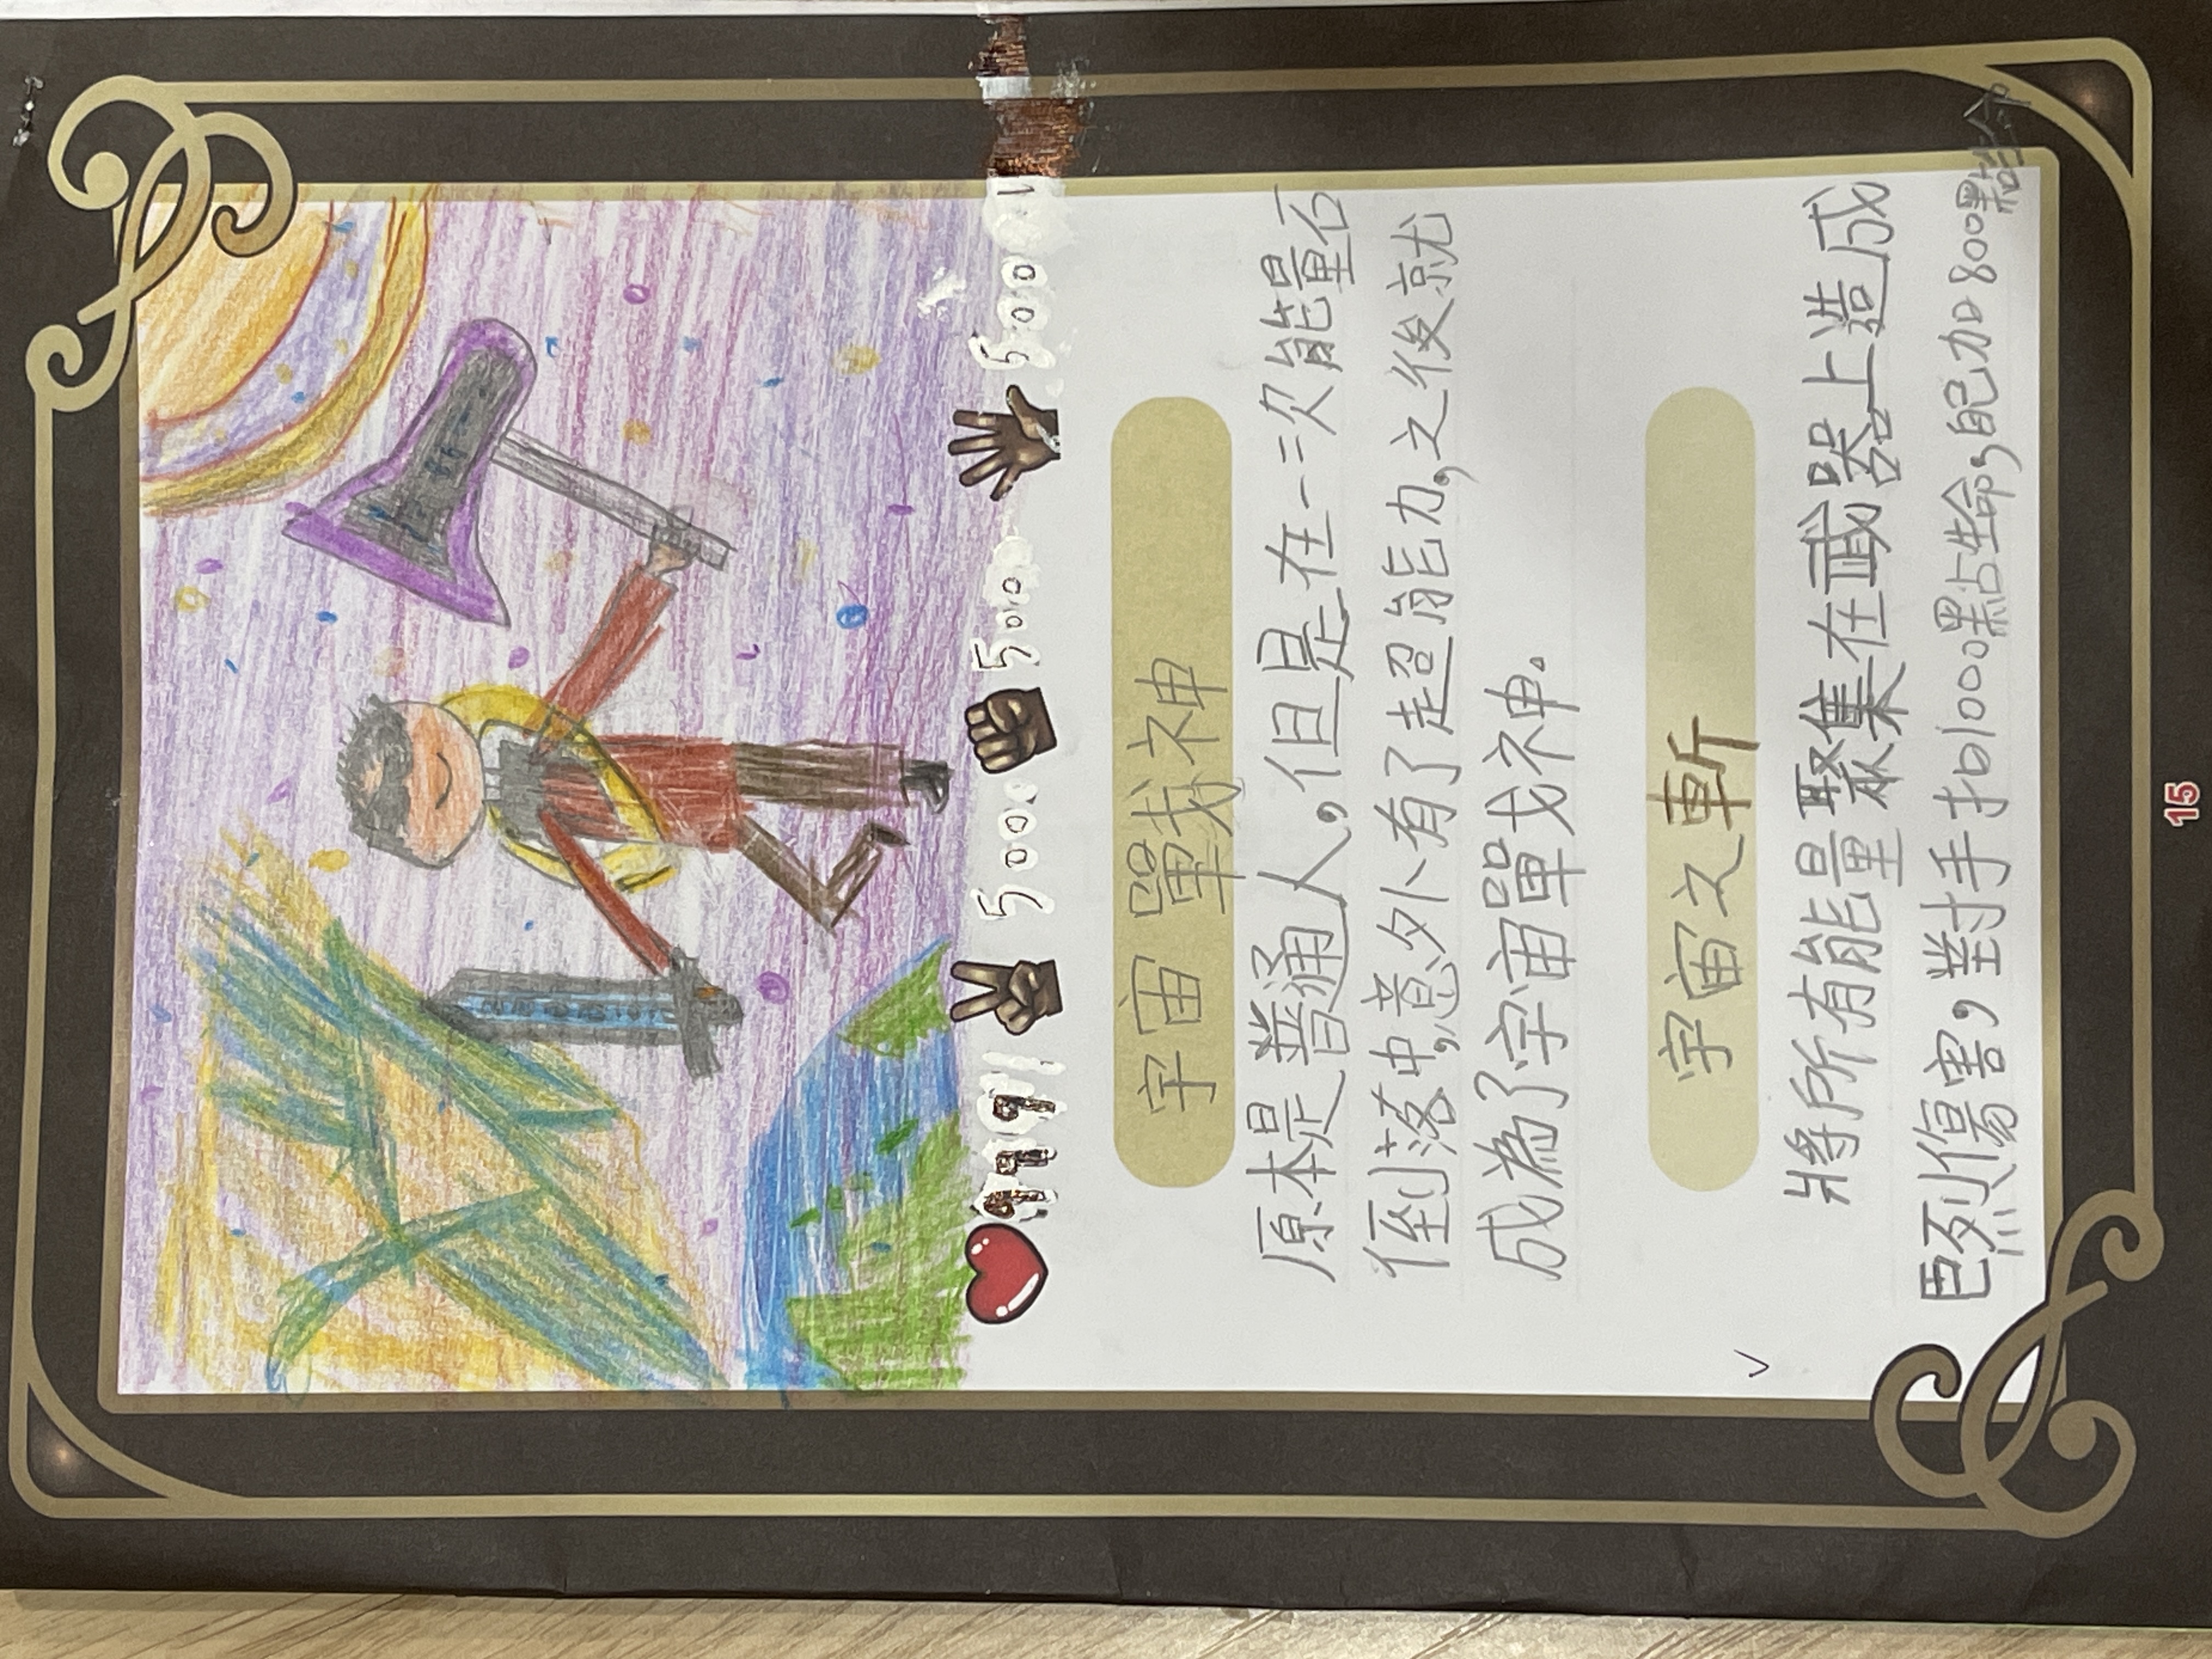 5000 500 500
宇宙戰神
原本是普通人,但是在一次能量石
倒落中,意外有了超能力,之後就
成為了宇宙戰神。
宇宙之斬
將所有能量聚集在武器上造成
巨烈傷害,對手扣1000點生命,自己加800點生命
15